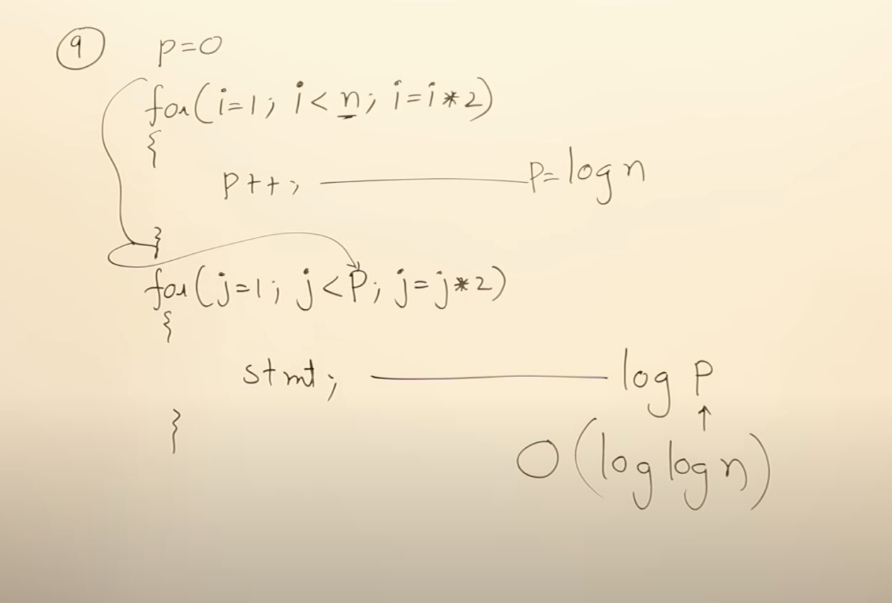 9 p=0
for(i=1; i<n; i=i*2)
{
p++; p=log n
}
for(j=1; j<p; j=j*2)
{
stmt; log p
↑
} O(log log n)